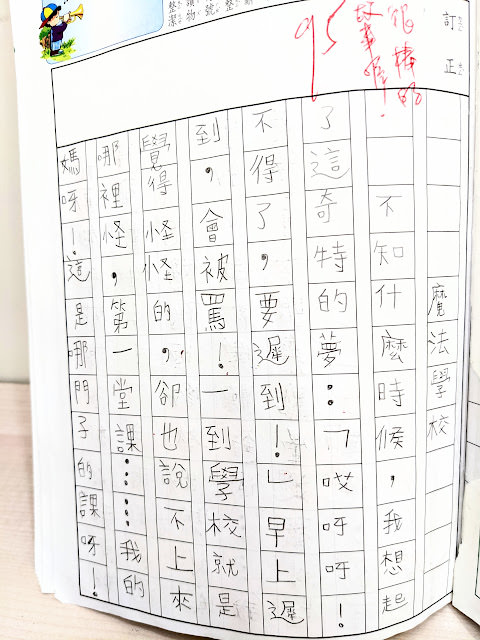 訂正
很棒的
故事喔!
95
魔法學校
不知什麼時候,我想起
了這奇特的夢:「哎呀呀!
不得了,要遲到!」早上遲
到,會被罵!一到學校就是
覺得怪怪的,卻也說不上來
哪裡怪,第一堂課……我的
媽呀!這是哪門子的課呀!